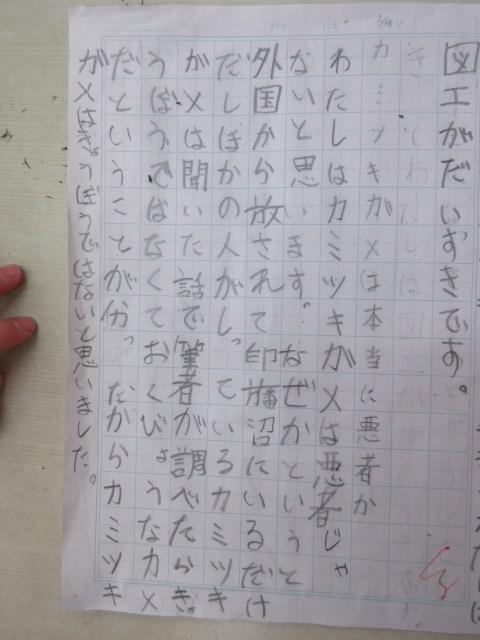 図工がだいすきです。
カミツキガメは本当に悪者か
わたしはカミツキガメは悪者じゃ
ないと思います。なぜかというと
外国から放されて印旛沼にいるだけ
だしほかの人がしっているカミツキ
ガメは聞いた話で筆者が調べたらきょ
うぼうではなくておくびょうなカメ
だということが分っだからカミツキ
ガメはきょうぼうではないと思いました。